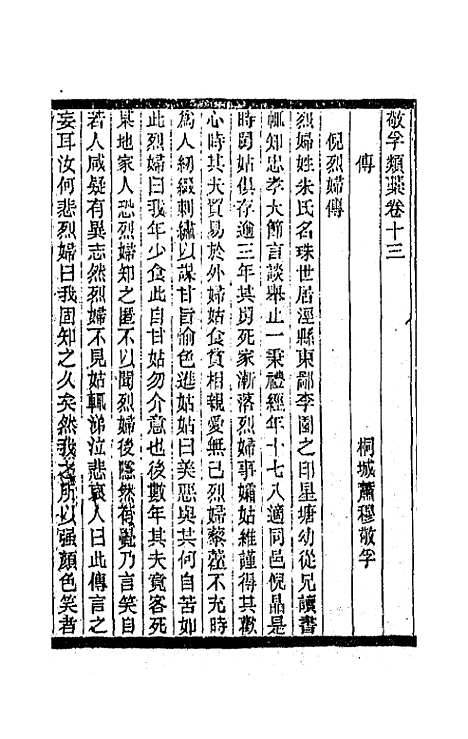 敬孚類藁卷十三
桐城蕭穆敬孚
傳
倪烈婦傳
烈婦姓朱氏名珠世居涇縣東鄙李園之印星塘幼從兄讀書
輒知忠孝大節言談舉止一秉禮經年十七八適同邑倪晶是
時舅姑俱存逾三年其舅死家漸落烈婦事孀姑維謹得其歡
心時其夫貿易於外婦姑食貧相親愛無已烈婦藜藿不充時
為人紉綴刺繡以謀甘旨愉色進姑姑曰美惡與共何自苦如
此烈婦曰我年少食此自甘姑勿介意也後數年其夫竟客死
某地家人恐烈婦知之匿不以聞烈婦後隱然有覺乃言笑自
若人咸疑有異志然烈婦不見姑輒涕泣悲哀人曰此傳言之
妄耳汝何悲烈婦曰我固知之久矣然我之所以强顏色笑者